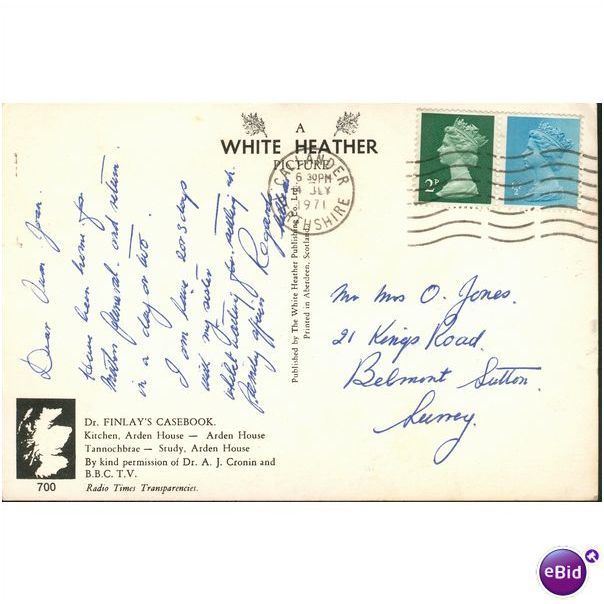 A
WHITE HEATHER
PICTURE
CALLANDER
6 30PM
JLY
1971
PERTHSHIRE
2P
½
Dear Oven Joan.
have been home for
General. and return
in a day or two.
I am here 2 or 3 days
with my sister
whilst waiting for settling
family affairs
Regards
Published by The White Heather Publishing Co. Ltd.,
Printed in Aberdeen, Scotland
Mr Mrs O. Jones.
21 Kings Road.
Belmont Sutton.
Surrey.
Dr. FINLAY'S CASEBOOK.
Kitchen, Arden House — Arden House
Tannochbrae — Study, Arden House
By kind permission of Dr. A. J. Cronin and
B.B.C. T.V.
700
Radio Times Transparencies.
eBid